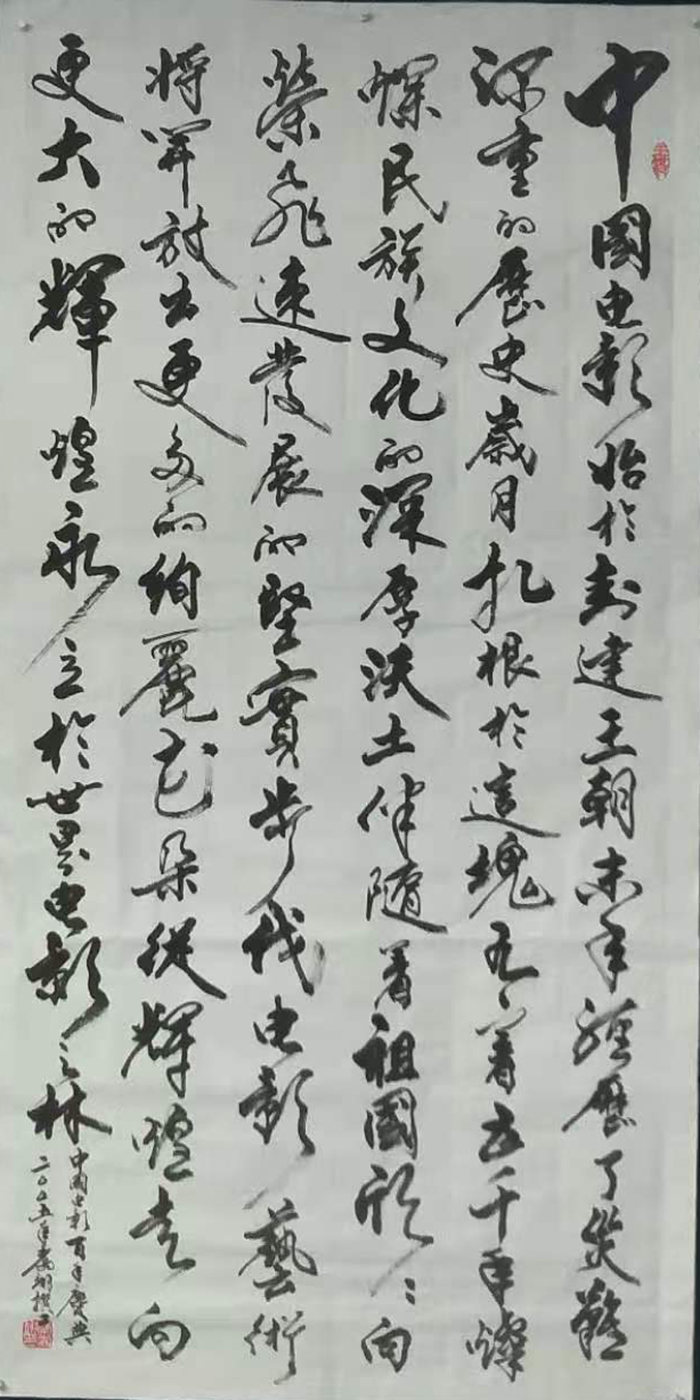 中國电影始於封建王朝末年經歷了災難
深重的歷史歲月扎根於這塊有着五千年燦
民族文化的深厚沃土伴隨着祖國欣々向
榮飛速發展的堅實步伐电影藝術
將開放出更多的絢麗花朵從輝煌走向
更大的輝煌永立於世界电影之林
中國电影百年慶典
二〇〇五年